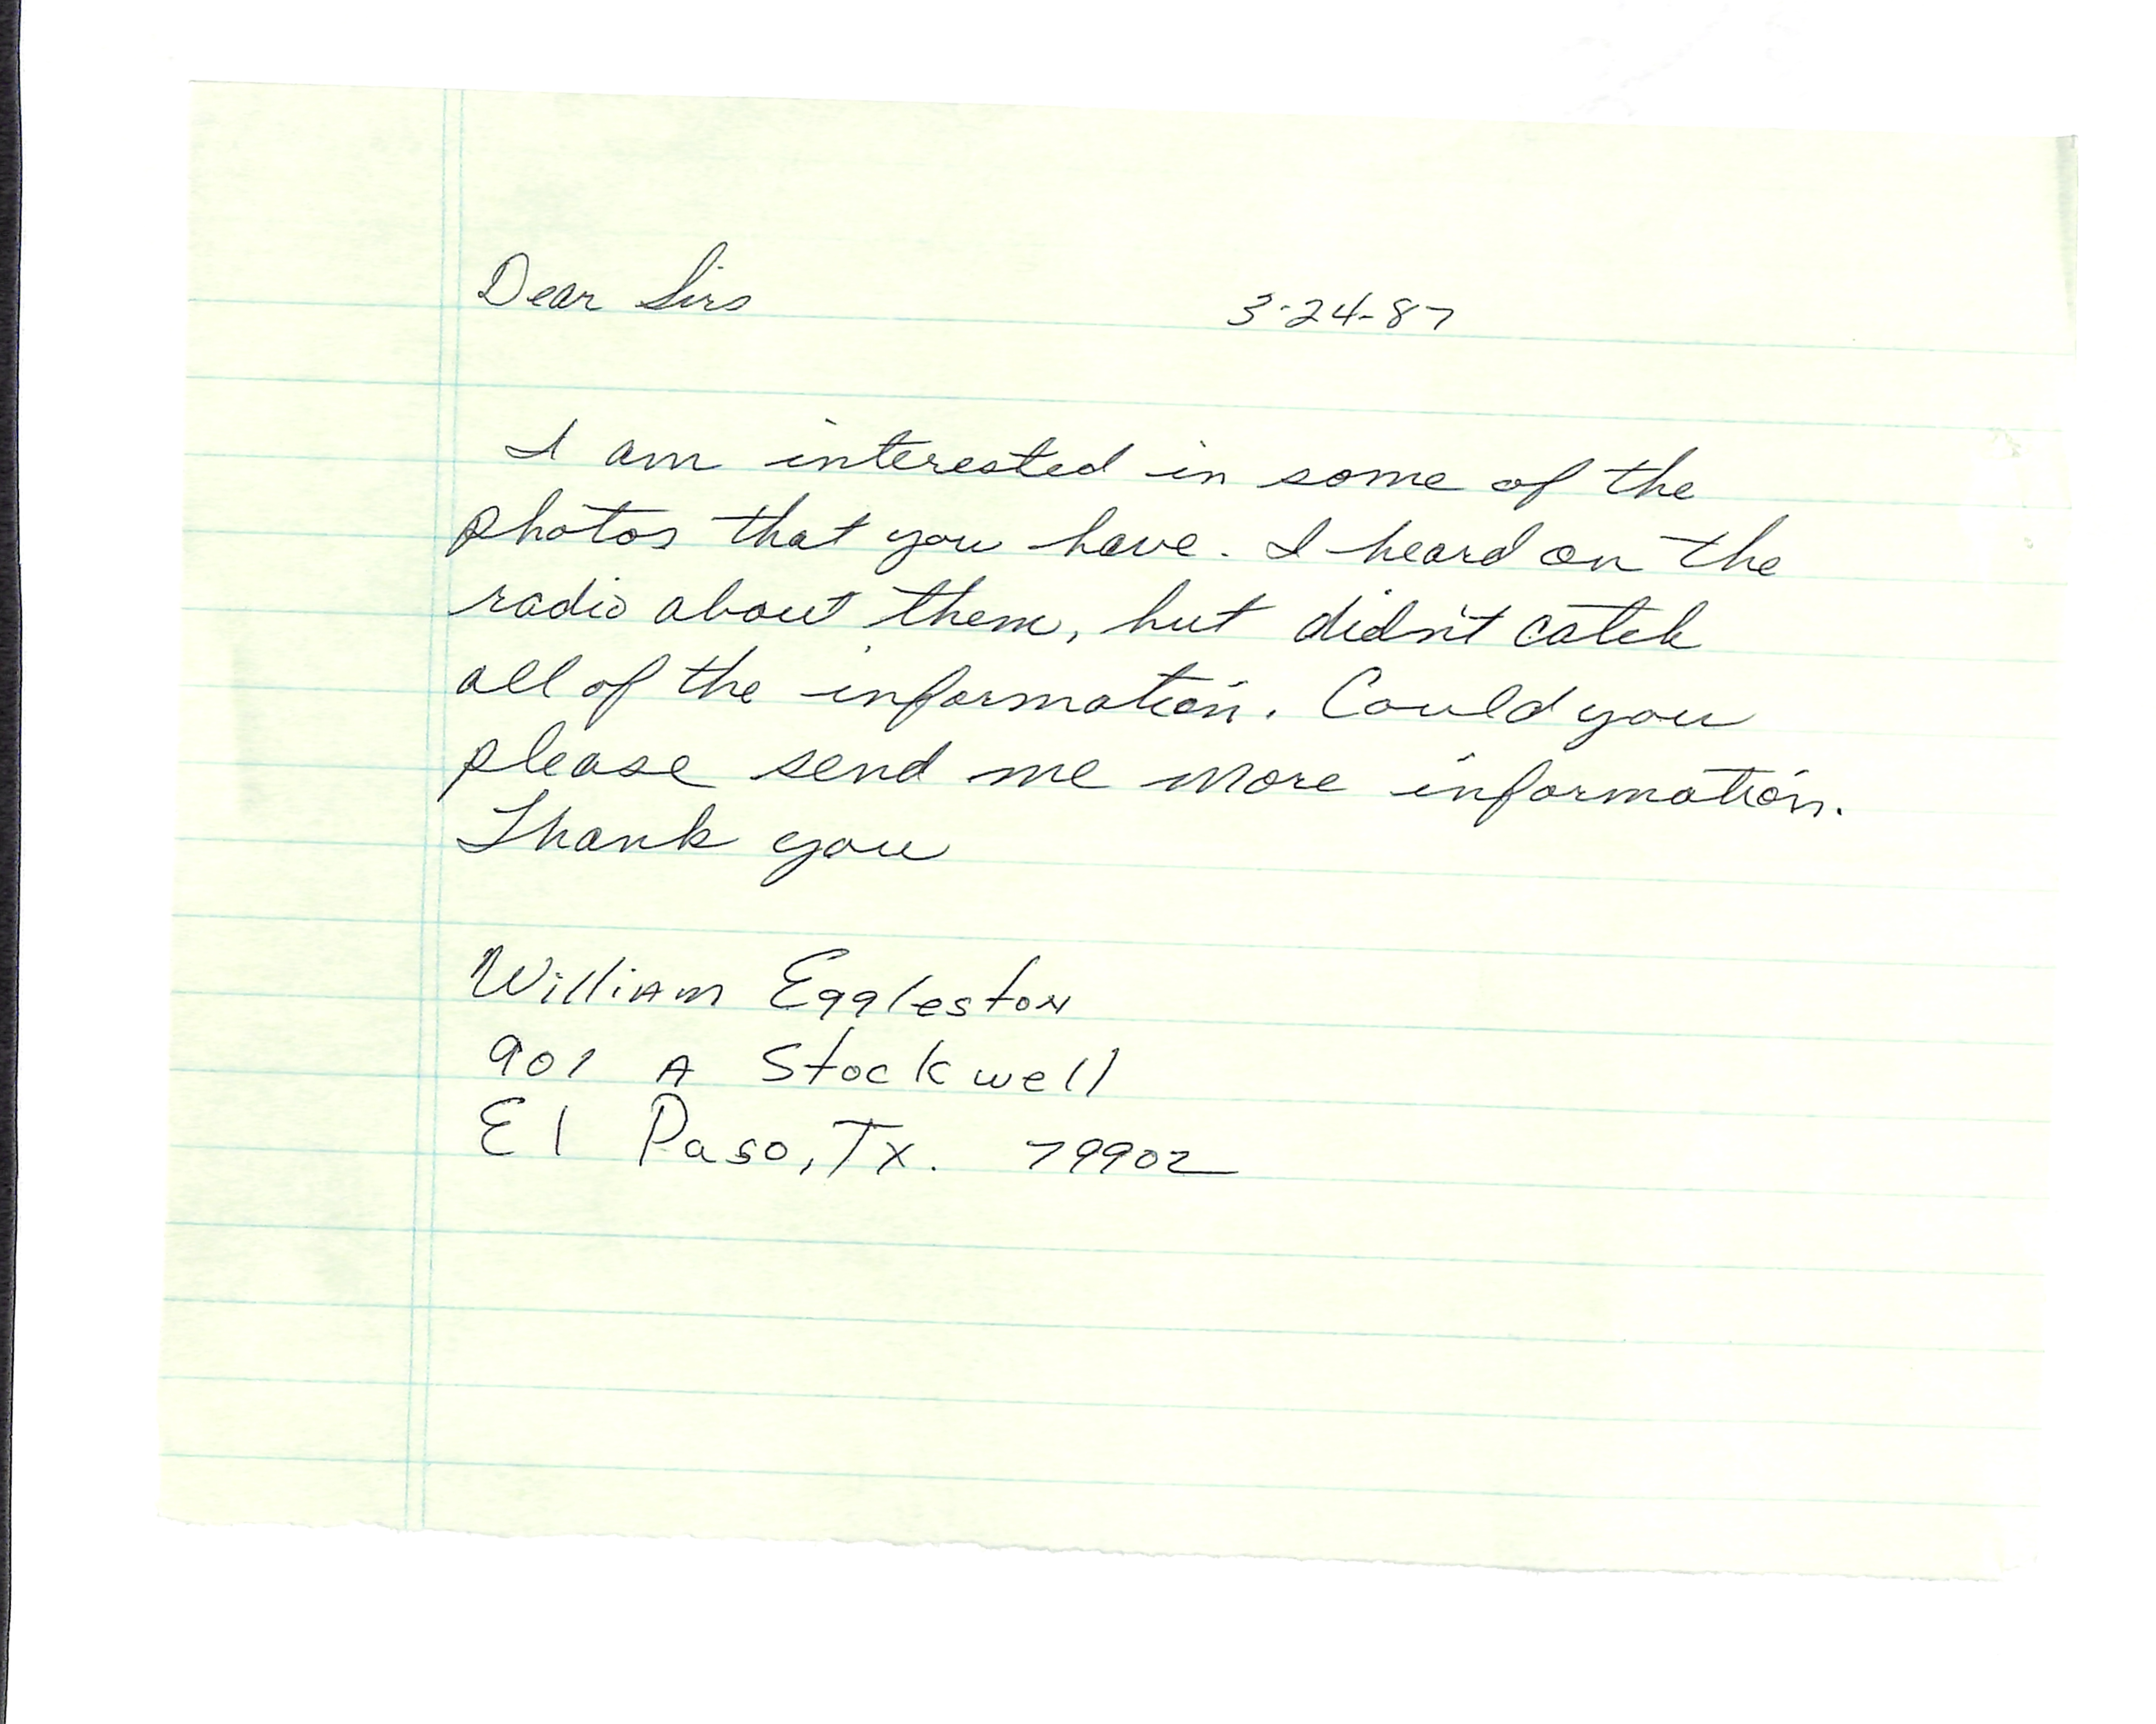 Dear Sirs 3-24-87
I am interested in some of the
photos that you have. I heard on the
radio about them, but didn't catch
all of the information. Could you
please send me more information.
Thank you
William Eggleston
901 A Stockwell
El Paso, Tx. 79902